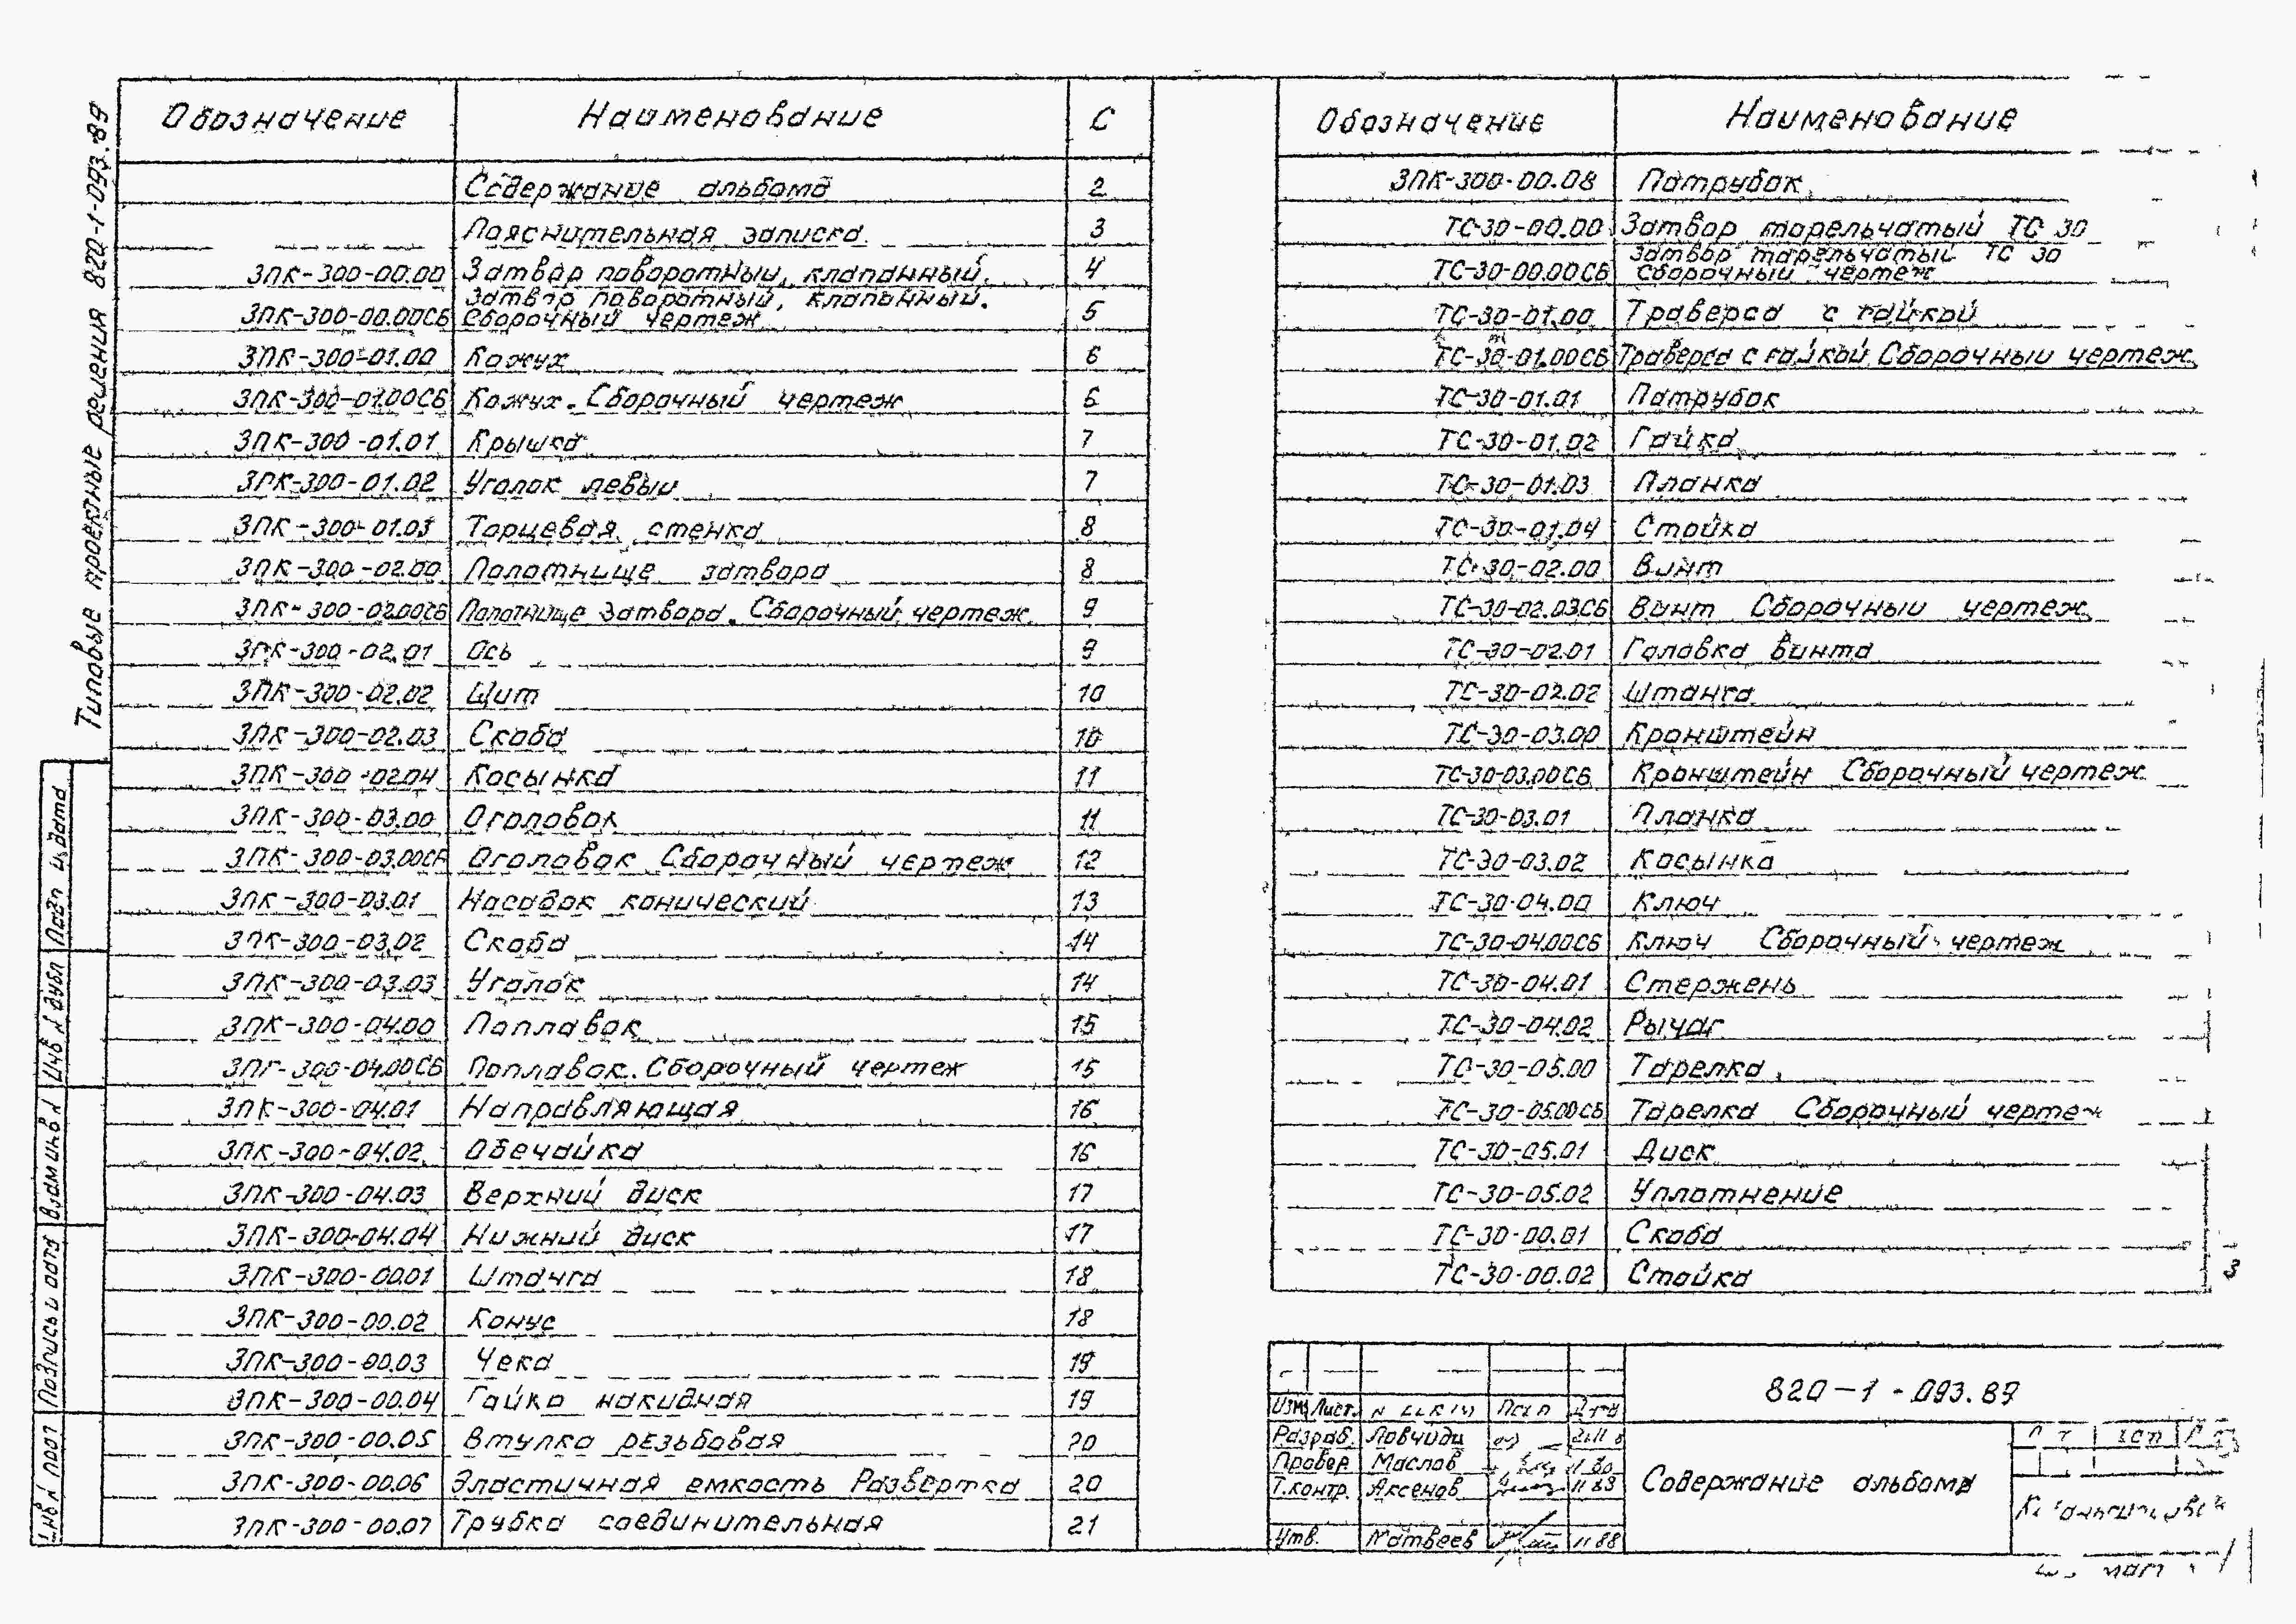 Типовые проектные решения 820-1-093.89
Обозначение Наименование С
Содержание альбома 2
Пояснительная записка 3
ЗПК-300-00.00 Затвор поворотный, клапанный. 4
Затвор поворотный, клапанный.
ЗПК-300-00.00СБ Сборочный чертеж 5
ЗПК-300-01.00 Кожух 6
ЗПК-300-01.00СБ Кожух. Сборочный чертеж 6
ЗПК-300-01.01 Крышка 7
ЗПК-300-01.02 Уголок левый 7
ЗПК-300-01.03 Торцевая стенка 8
ЗПК-300-02.00 Полотнище затвора 8
ЗПК-300-02.00СБ Полотнище затвора. Сборочный чертеж 9
ЗПК-300-02.01 Ось 9
ЗПК-300-02.02 Щит 10
ЗПК-300-02.03 Скоба 10
ЗПК-300-02.04 Косынка 11
ЗПК-300-03.00 Оголовок 11
ЗПК-300-03.00СБ Оголовок Сборочный чертеж 12
ЗПК-300-03.01 Насадок конический 13
ЗПК-300-03.02 Скоба 14
ЗПК-300-03.03 Уголок 14
ЗПК-300-04.00 Поплавок 15
ЗПК-300-04.00СБ Поплавок. Сборочный чертеж 15
ЗПК-300-04.01 Направляющая 16
ЗПК-300-04.02 Обечайка 16
ЗПК-300-04.03 Верхний диск 17
ЗПК-300-04.04 Нижний диск 17
ЗПК-300-00.01 Штанга 18
ЗПК-300-00.02 Конус 18
ЗПК-300-00.03 Чека 19
ЗПК-300-00.04 Гайка накидная 19
ЗПК-300-00.05 Втулка резьбовая 20
ЗПК-300-00.06 Эластичная емкость Развертка 20
ЗПК-300-00.07 Трубка соединительная 21
Обозначение Наименование
ЗПК-300-00.08 Патрубок
ТС-30-00.00 Затвор тарельчатый ТС 30
Затвор тарельчатый ТС 30
ТС-30-00.00СБ Сборочный чертеж
ТС-30-01.00 Траверса с гайкой
ТС-30-01.00СБ Траверса с гайкой. Сборочный чертеж
ТС-30-01.01 Патрубок
ТС-30-01.02 Гайка
ТС-30-01.03 Планка
ТС-30-01.04 Стойка
ТС-30-02.00 Винт
ТС-30-02.03СБ Винт Сборочный чертеж
ТС-30-02.01 Головка винта
ТС-30-02.02 Штанга
ТС-30-03.00 Кронштейн
ТС-30-03.00СБ Кронштейн Сборочный чертеж
ТС-30-03.01 Планка
ТС-30-03.02 Косынка
ТС-30-04.00 Ключ
ТС-30-04.00СБ Ключ Сборочный чертеж
ТС-30-04.01 Стержень
ТС-30-04.02 Рычаг
ТС-30-05.00 Тарелка
ТС-30-05.00СБ Тарелка Сборочный чертеж
ТС-30-05.01 Диск
ТС-30-05.02 Уплотнение
ТС-30-00.01 Скоба
ТС-30-00.02 Стойка
3
820-1-093.89
Изм Лист
Разраб.
Провер. Маслов
Т.контр. Аксенов 11 88
Утв. Матвеев 11 88
Содержание альбома
Подп и дата
Инв № дубл
Взам инв №
Подпись и дата
Инв № подл